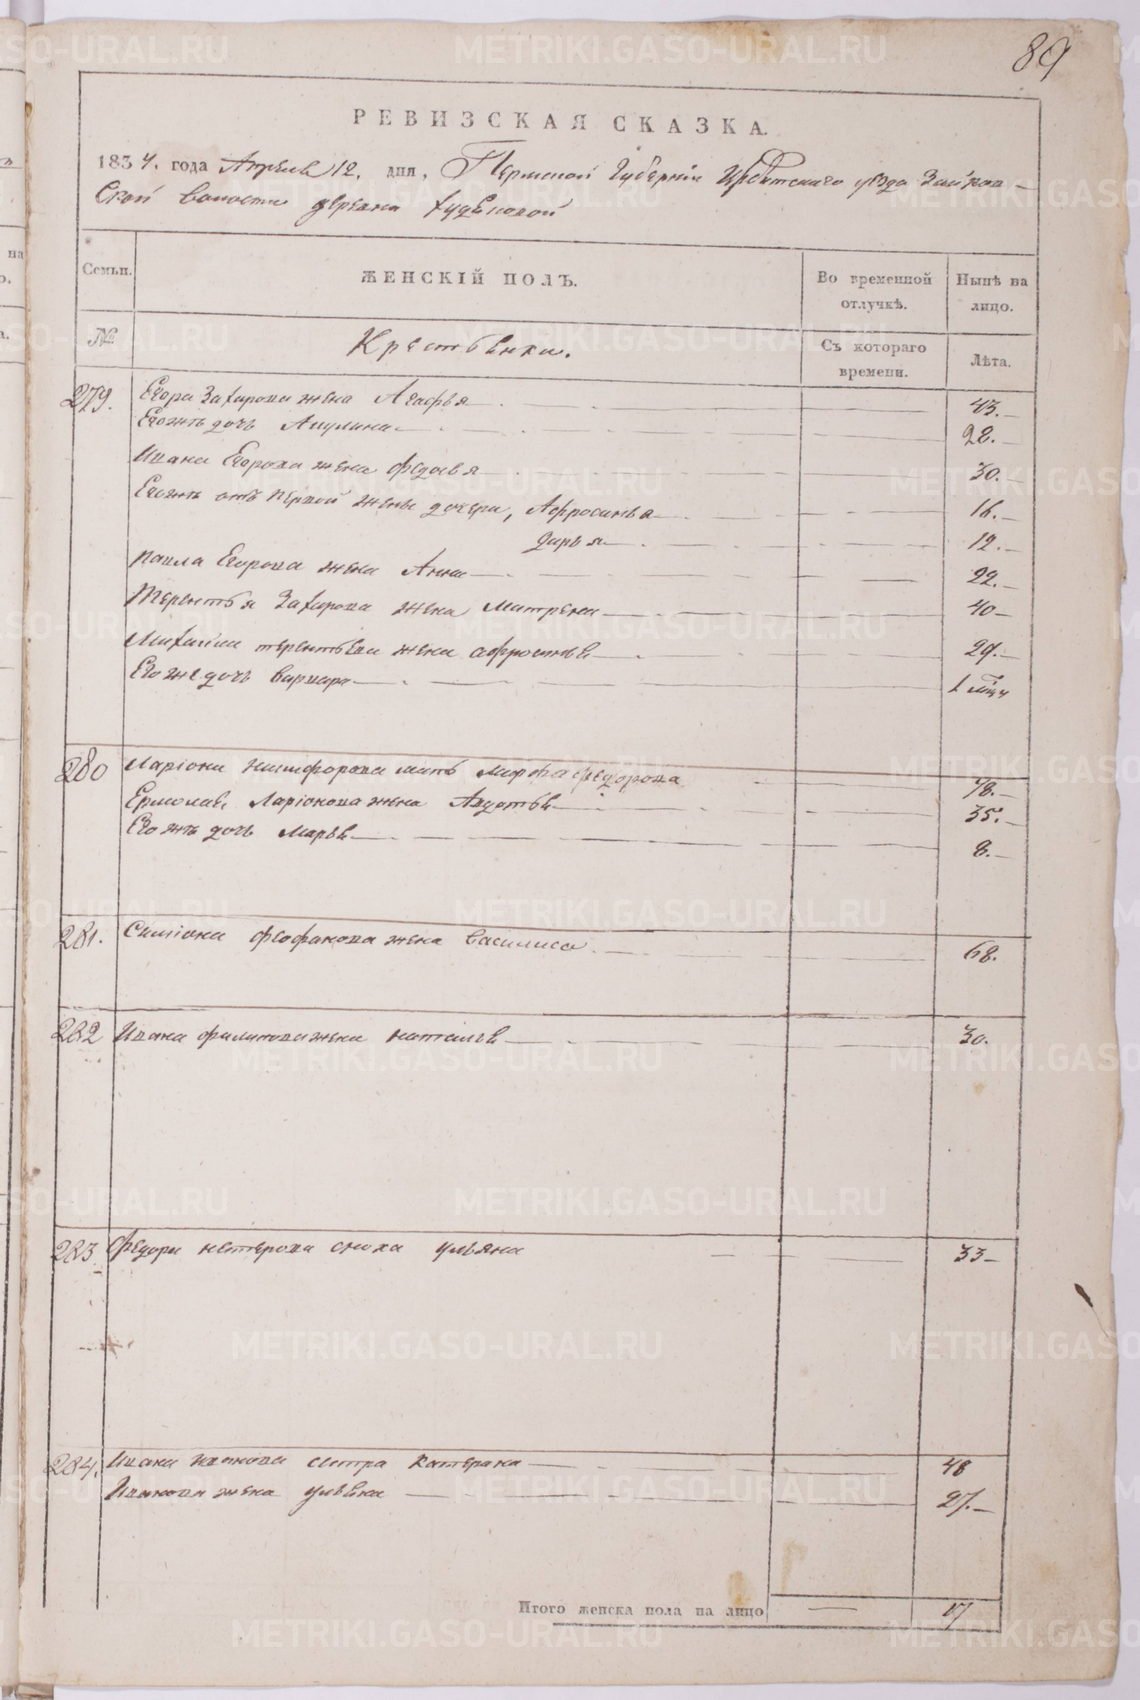 89
РЕВИЗСКАЯ СКАЗКА.
1834. года Апреля 12. дня, Пермской Губернiи Ирбитскаго уезда Зайков-
ской волости деревни
Семьи.
ЖЕНСКIЙ ПОЛЪ.
Во временной отлучкѣ.
Нынѣ на лицо.
№
Крестьянки.
Съ котораго времени.
Лѣта.
279. Егора Захарова жена Агафья 43.
Егожъ дочь Акулина 28.
Ивана Егорова жена Федосья 30.
Егожъ отъ первой жены дочери, Афросинья 16.
Дарья 12.
Павла Егорова жена Анна 22.
Терентья Захарова жена Матрена 40
Михаила терентьева жена афросинья 29.
Егоже дочь варвара 1 мцъ
280 Ларiона никифорова мать Марфа федорова 78.
Ермолая Ларiонова жена Авдотья 35.
Егожъ дочь Марья 8.
281. Симiона феофанова жена василиса 68.
282 Ивана филипова жена наталья 30.
283 федора нестерова сноха ульяна 33
284. Ивана иванова сестра катерина 48
Иванова жена ульяна 27.
Итого женска пола на лицо 17
METRIKI.GASO-URAL.RU